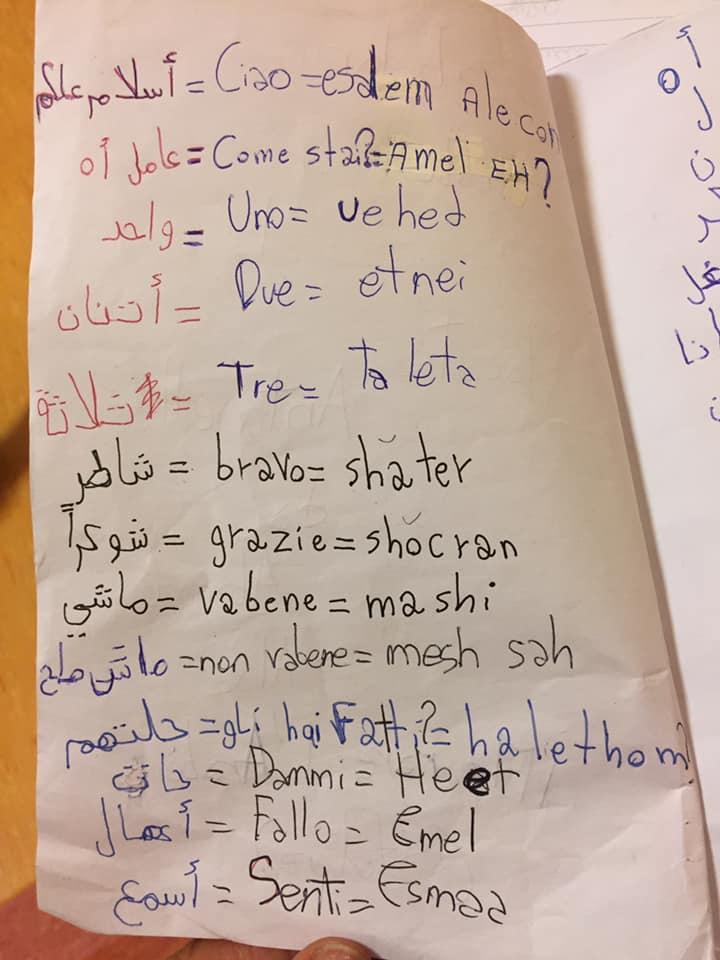 أسلام علكم = Ciao = esdem Alecom
عامل أه = Come stai? = Amel EH?
واحد = Uno = vehed
أتنان = Due = etnei
تلاتة = Tre = Ta leta
شاطر = bravo = shater
شوكراً = grazie = shocran
ماشي = vabene = mashi
ماش صاح = non vabene = mesh sah
حلتهم = gli hai Fatti? = halethom?
حات = Dammi = Heet
أعمال = Fallo = Emel
أسوع = Senti = Esmaa
أ
o
ل
ن
ر